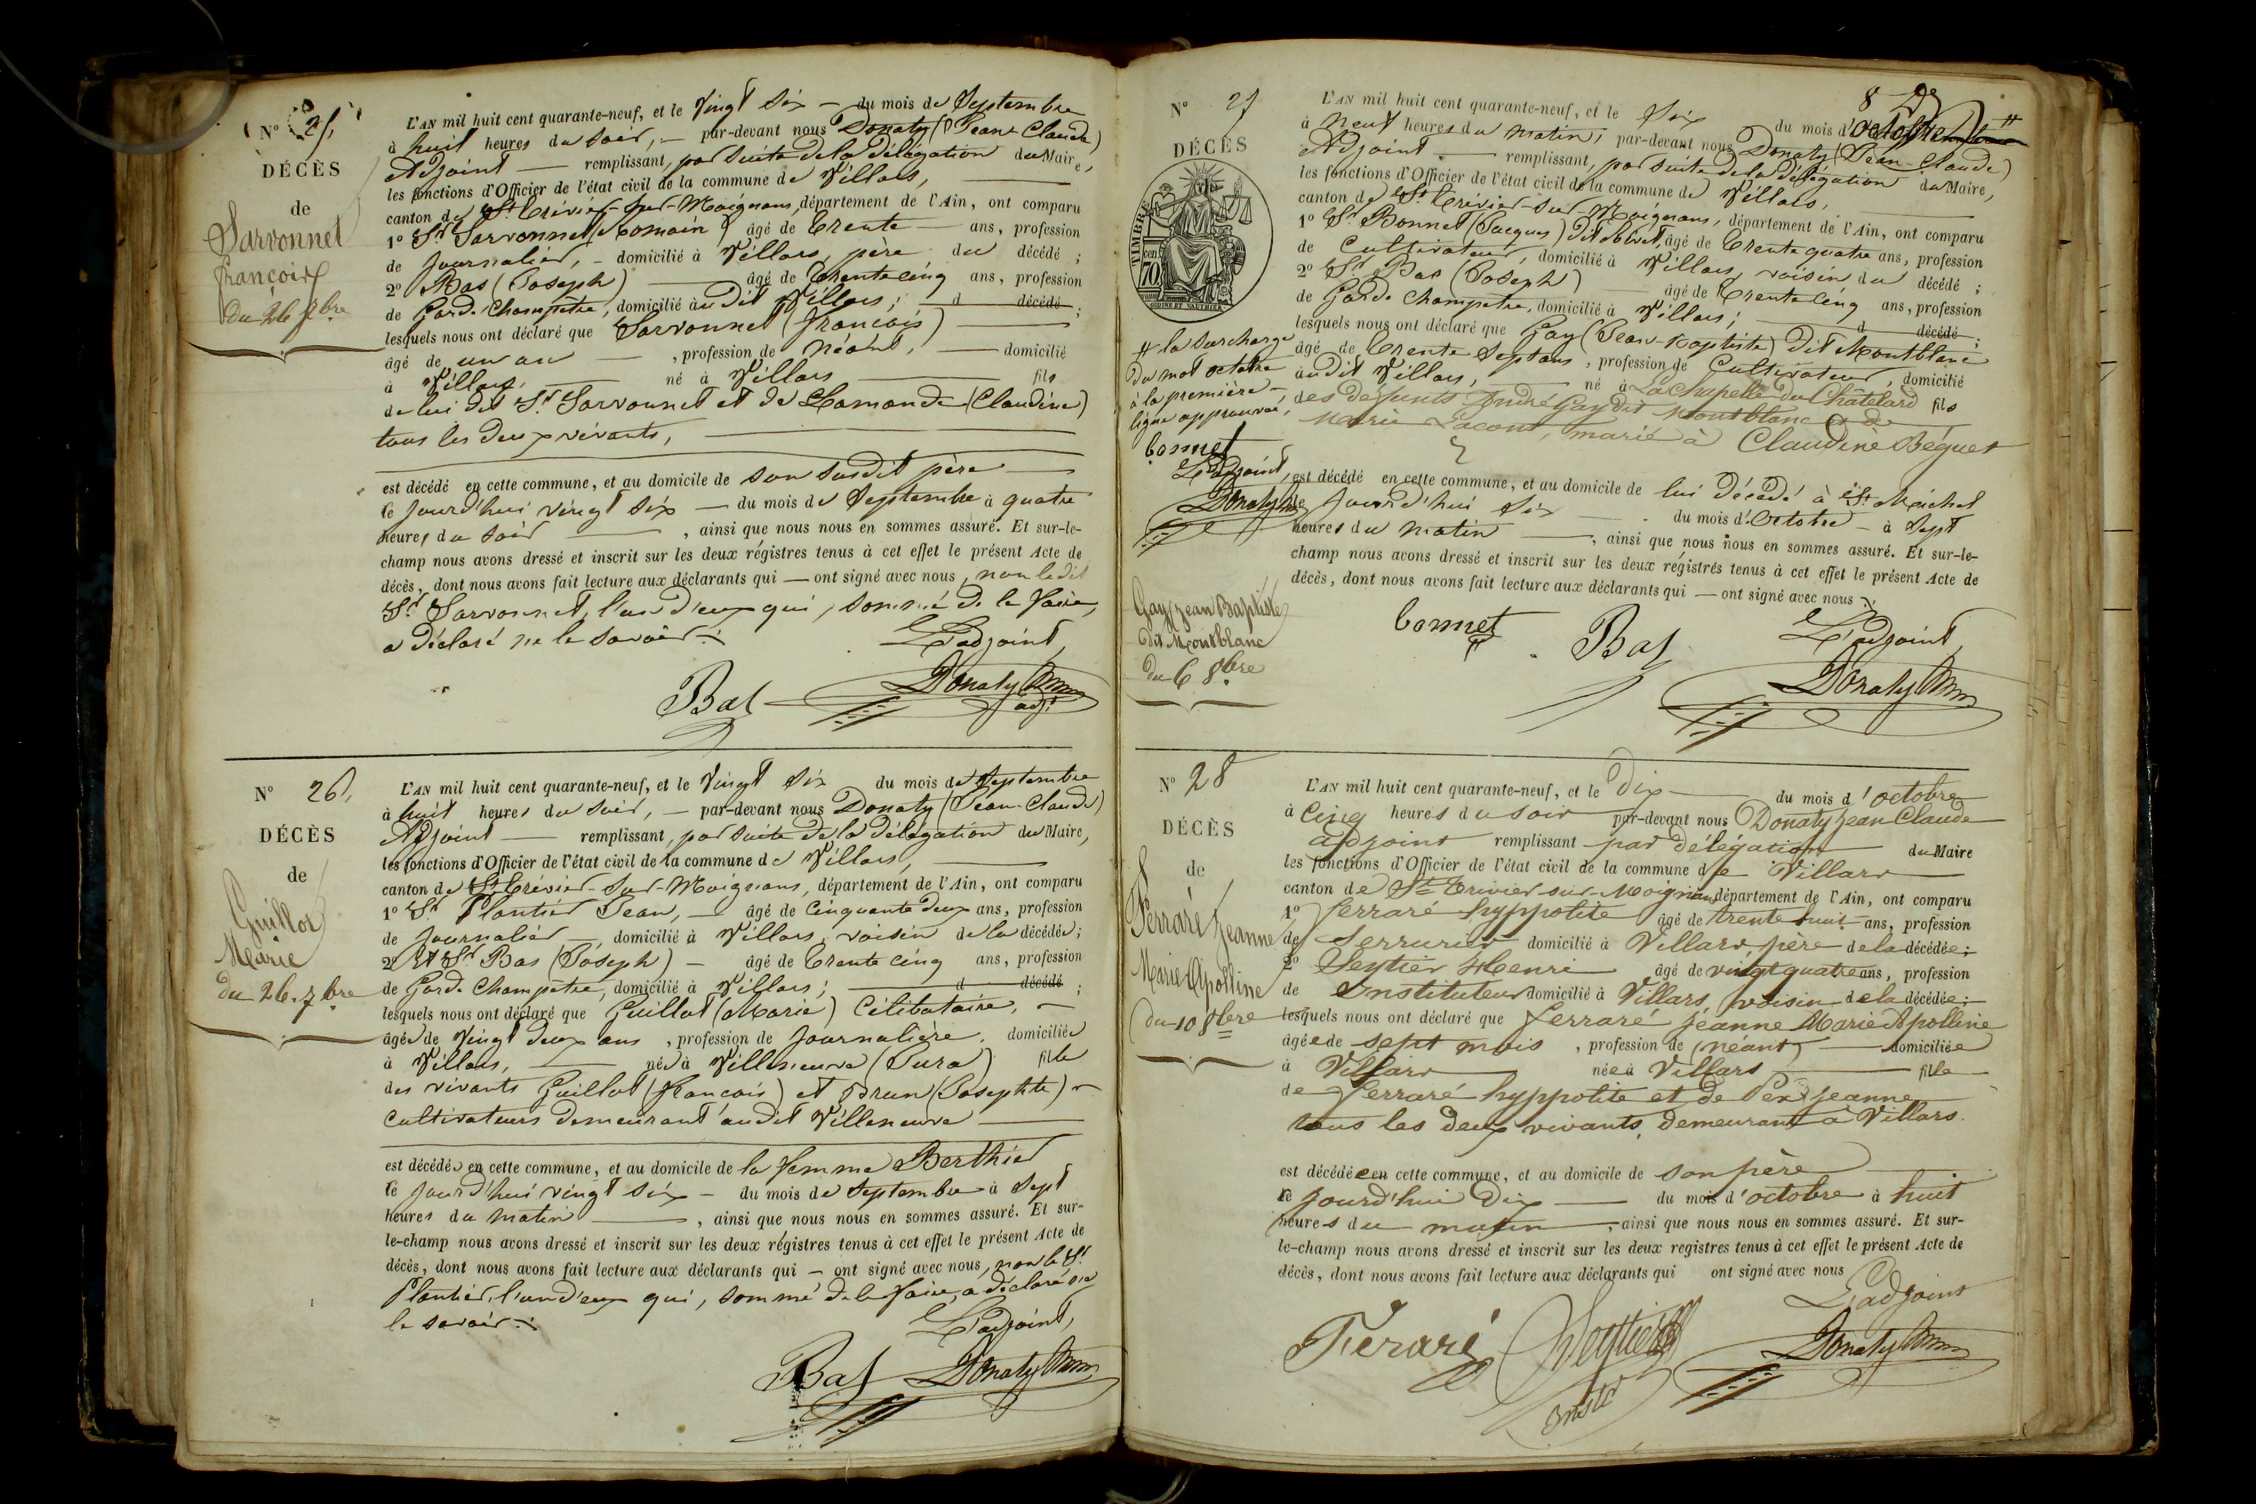 N° 25.
DÉCÈS
de
Sarvonnet
françois
du 26 7bre
L'AN mil huit cent quarante-neuf, et le Vingt Six — du mois de Septembre
à huit heures du soir, — par-devant nous Donaty (Jean Claude)
Adjoint — remplissant, par suite de la délégation du Maire,
les fonctions d'Officier de l'état civil de la commune de Villars,
canton de St Trivier-sur-Moignans, département de l'Ain, ont comparu
1° Sr Sarvonnet (Romain) âgé de Trente ans, profession
de Journalier, — domicilié à Villars, père du décédé ;
2° Bas (Joseph) — âgé de Trente cinq ans, profession
de Garde Champêtre, domicilié au dit Villars ; — d décédé ;
lesquels nous ont déclaré que Sarvonnet (francois)
âgé de un an — , profession de Néant, — domicilié
à Villars, — né à Villars — fils
de lui dit Sr Sarvonnet et de Lamande (Claudine)
tous les deux vivants,
est décédé en cette commune, et au domicile de son susdit père
le Jourd'hui vingt six — du mois de Septembre à quatre
heures du soir — , ainsi que nous nous en sommes assuré. Et sur-le-
champ nous avons dressé et inscrit sur les deux régistres tenus à cet effet le présent Acte de
décès, dont nous avons fait lecture aux déclarants qui — ont signé avec nous, non le dit
Sr Sarvonnet, l'un d'eux qui, sommé de le faire,
a déclaré ne le savoir
L'adjoint,
Bas Donaty
adj.
N° 26.
DÉCÈS
de
Guillot
Marie
du 26. 7bre
L'AN mil huit cent quarante-neuf, et le Vingt Six du mois de Septembre
à huit heures du soir, — par-devant nous Donaty (Jean-Claude)
Adjoint — remplissant, par suite de la délégation du Maire,
les fonctions d'Officier de l'état civil de la commune de Villars,
canton de St Trévier-sur-Moignans, département de l'Ain, ont comparu
1° Sr Plantier Jean, — âgé de Cinquante deux ans, profession
de Journalier — domicilié à Villars, voisin de la décédée ;
2° Et Sr Bas (Joseph) — âgé de Trente cinq ans, profession
de Garde Champetre, domicilié à Villars ; — d décédé ;
lesquels nous ont déclaré que Guillot (Marie) Célibataire, —
âgée de Vingt deux ans , profession de Journalière, domiciliée
à Villars, — née à Villeneuve (Jura) fille
des vivants Guillot (francois) et Brun (Josephte) —
cultivateurs demeurant au dit Villeneuve
est décédée en cette commune, et au domicile de la femme Berthier
le Jourd'hui vingt six — du mois de Septembre à Sept
heures du matin — , ainsi que nous nous en sommes assuré. Et sur-
le-champ nous avons dressé et inscrit sur les deux régistres tenus à cet effet le présent Acte de
décès, dont nous avons fait lecture aux déclarants qui — ont signé avec nous, non le Sr
Plantier, l'un d'eux qui, sommé de le faire, a déclaré ne
le savoir
L'adjoint,
Bas Donaty
8
N° 27
DÉCÈS
TIMBRE
70
L'AN mil huit cent quarante-neuf, et le Six du mois d'octobre #
à neuf heures du matin, par-devant nous Donaty (Jean-Claude)
Adjoint — remplissant, par suite de la délégation du Maire,
les fonctions d'Officier de l'état civil de la commune de Villars,
canton de St Trévier-sur-Moignans, département de l'Ain, ont comparu
1° Sr Bonnet (Jacques) dit âgé de Trente quatre ans, profession
de Cultivateur, domicilié à Villars, voisin du décédé ;
2° Sr Bas (Joseph) âgé de Trente cinq ans, profession
de Garde champetre, domicilié à Villars ; — d décédé ;
lesquels nous ont déclaré que Gay (Jean-Baptiste) dit Montblanc
âgé de Trente Sept ans, profession de Cultivateur, domicilié
au dit Villars, — né à La Chapelle du Châtelard fils
des défunts André Gay dit Montblanc et de
Marie Lacour, marié à Claudine Béguet
# la surcharge
du mot octobre
à la première
ligne approuvée,
bonnet
L'adjoint,
Donaty
est décédé en cette commune, et au domicile de lui décédé à St Michel
le Jourd'hui Six — du mois d'Octobre — à Sept
heures du matin — , ainsi que nous nous en sommes assuré. Et sur-le-
champ nous avons dressé et inscrit sur les deux régistres tenus à cet effet le présent Acte de
décès, dont nous avons fait lecture aux déclarants qui — ont signé avec nous
Gay Jean Baptiste
dit Montblanc
du 6 8bre
bonnet Bas L'adjoint,
Donaty
N° 28
DÉCÈS
de
Ferraré Jeanne
Marie Apolline
du 10 8bre
L'AN mil huit cent quarante-neuf, et le dix — du mois d'octobre
à cinq heures du soir par-devant nous Donaty Jean Claude
adjoint remplissant par délégation du Maire
les fonctions d'Officier de l'état civil de la commune de Villars
canton de St Trivier-sur-Moignans département de l'Ain, ont comparu
1° ferraré hyppolite âgé de trente huit ans, profession
de Serrurier domicilié à Villars père de la décédée ;
2° Seytier Henri âgé de vingt quatre ans, profession
de Instituteur domicilié à Villars, voisin de la décédée ;
lesquels nous ont déclaré que ferraré jeanne Marie Apolline
âgée de sept mois , profession de (néant) — domiciliée
à Villars née à Villars — fille
de ferraré hyppolite et de jeanne
tous les deux vivants, demeurant à Villars.
est décédée en cette commune, et au domicile de son père
le jourd'hui dix — du mois d'octobre à huit
heures du matin , ainsi que nous nous en sommes assuré. Et sur-
le-champ nous avons dressé et inscrit sur les deux registres tenus à cet effet le présent Acte de
décès, dont nous avons fait lecture aux déclarants qui ont signé avec nous
L'adjoint
Feraré Seytier Donaty
Instr